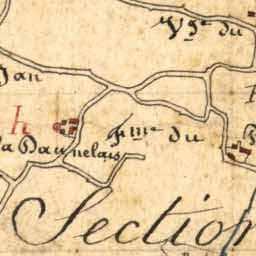 V.ge du
Jan
h
F.me du
la Daunelais
Section